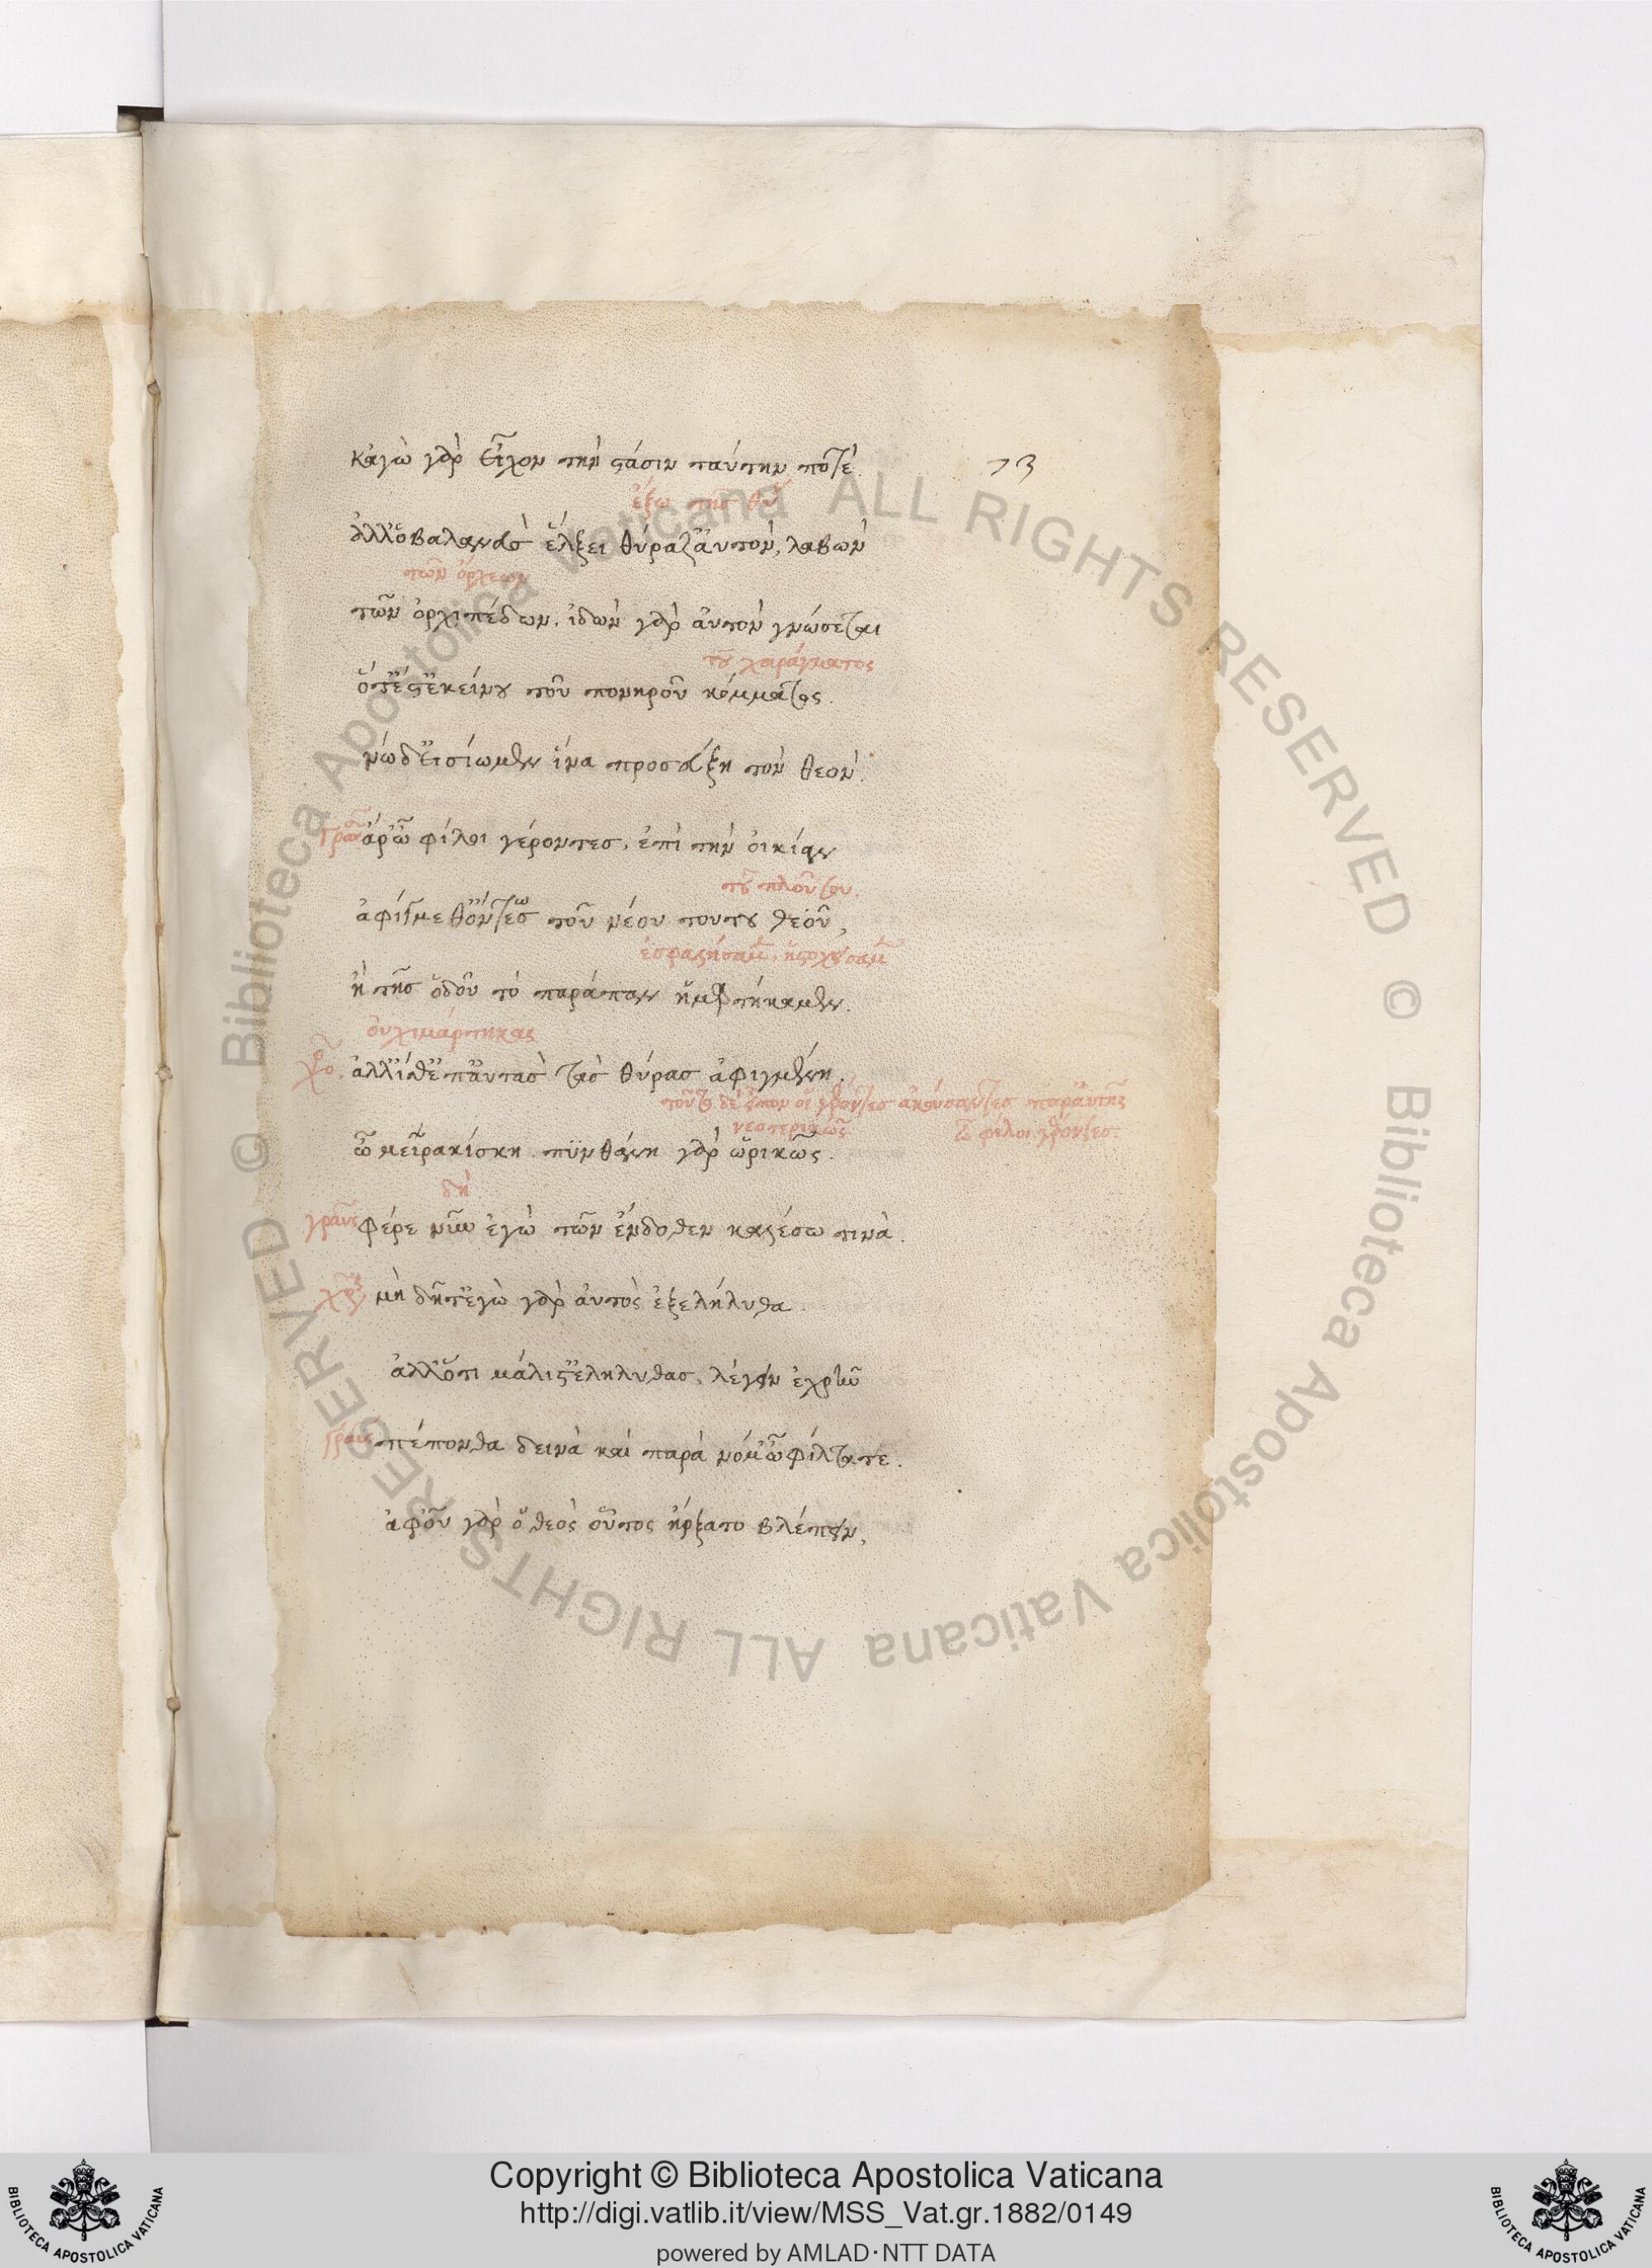 κἀγὼ γὰρ εἶχον τὴν στάσιν ταύτην ποτέ.
73
ἔξω τῆς θύ
ἀλλ' ὁ βαλανεὺς ἕλξει θύραζ' αὐτὸν, λαβὼν
τῶν ὄρχεων
τῶν ὀρχιπέδων. ἰδὼν γὰρ αὐτὸν γνώσεται
τοῦ χαράγματος
ὅτ' ἔστ' ἐκείνου τοῦ πονηροῦ κόμματος.
νὼ δ' εἰσίωμεν ἵνα προσεύξῃ τὸν θεόν.
γραῦς ἆρ' ὦ φίλοι γέροντες, ἐπὶ τὴν οἰκίαν
τοῦ πλούτου.
ἀφίγμεθ' ὄντως τοῦ νέου τούτου θεοῦ,
ἐσφάλημεν, ἠστοχήσαμεν
ἢ τῆς ὁδοῦ τὸ παράπαν ἡμαρτήκαμεν.
οὐχ ἡμάρτηκας
χο. ἀλλ' ἴσθ' ἐπ' αὐτὰς τὰς θύρας ἀφιγμένη,
τοῦτο δὲ εἶπον οἱ γέροντες ἀκούσαντες παρ' αὐτῆς
νεωτερικῶς ὦ φίλοι γέροντες.
ὦ μειρακίσκη. πυνθάνῃ γὰρ ὡρικῶς.
δὴ
γραῦς φέρε νῦν ἐγὼ τῶν ἔνδοθεν καλέσω τινά.
χρε μὴ δῆτ' ἐγὼ γὰρ αὐτὸς ἐξελήλυθα.
ἀλλ' ὅτι μάλιστ' ἐλήλυθας, λέγειν ἐχρῆν
γραῦς πέπονθα δεινὰ καὶ παράνομ' ὦ φίλτατε.
ἀφ' οὗ γὰρ ὁ θεὸς οὗτος ἤρξατο βλέπειν,
Copyright © Biblioteca Apostolica Vaticana
http://digi.vatlib.it/view/MSS_Vat.gr.1882/0149
powered by AMLAD·NTT DATA
BIBLIOTECA APOSTOLICA VATICANA
BIBLIOTECA APOSTOLICA VATICANA
© Biblioteca Apostolica Vaticana ALL RIGHTS RESERVED © Biblioteca Apostolica Vaticana ALL RIGHTS RESERVED